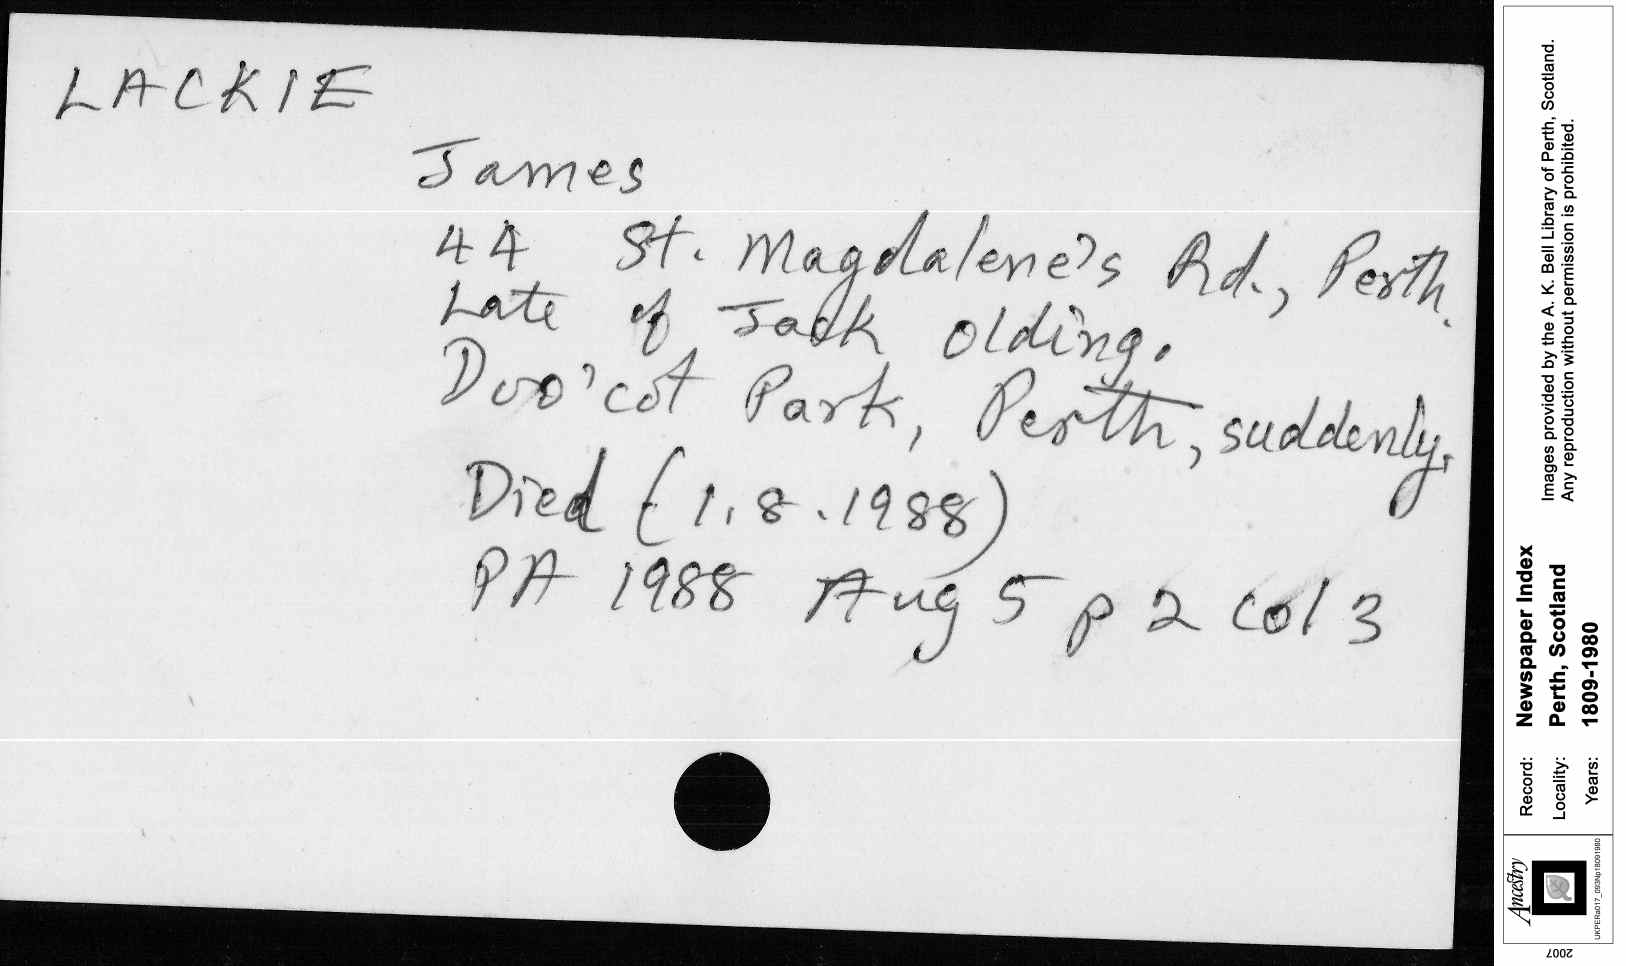 LACKIE
James
44 St. Magdalene's Rd., Perth.
Late of Jack Olding.
Doo'cot Park, Perth, suddenly.
Died (1.8.1988)
PA 1988 Aug 5 p 2 col 3
Images provided by the A. K. Bell Library of Perth, Scotland.
Any reproduction without permission is prohibited.
Record: Newspaper Index
Locality: Perth, Scotland
Years: 1809-1980
Ancestry
UKPERa017_093Np18091980
2007